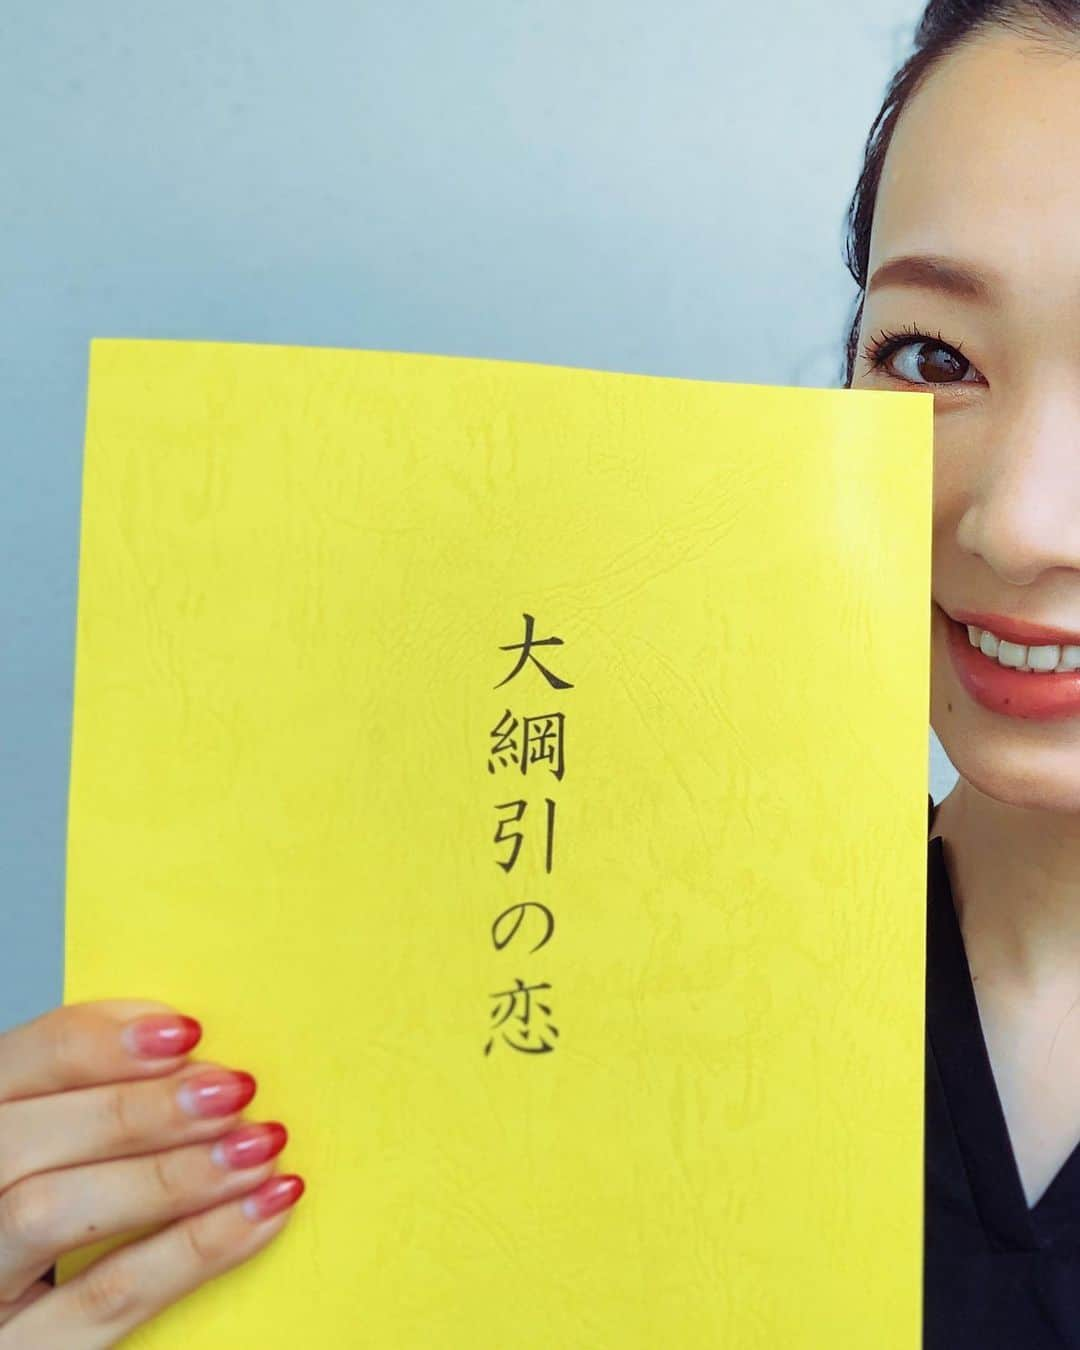 大綱引の恋